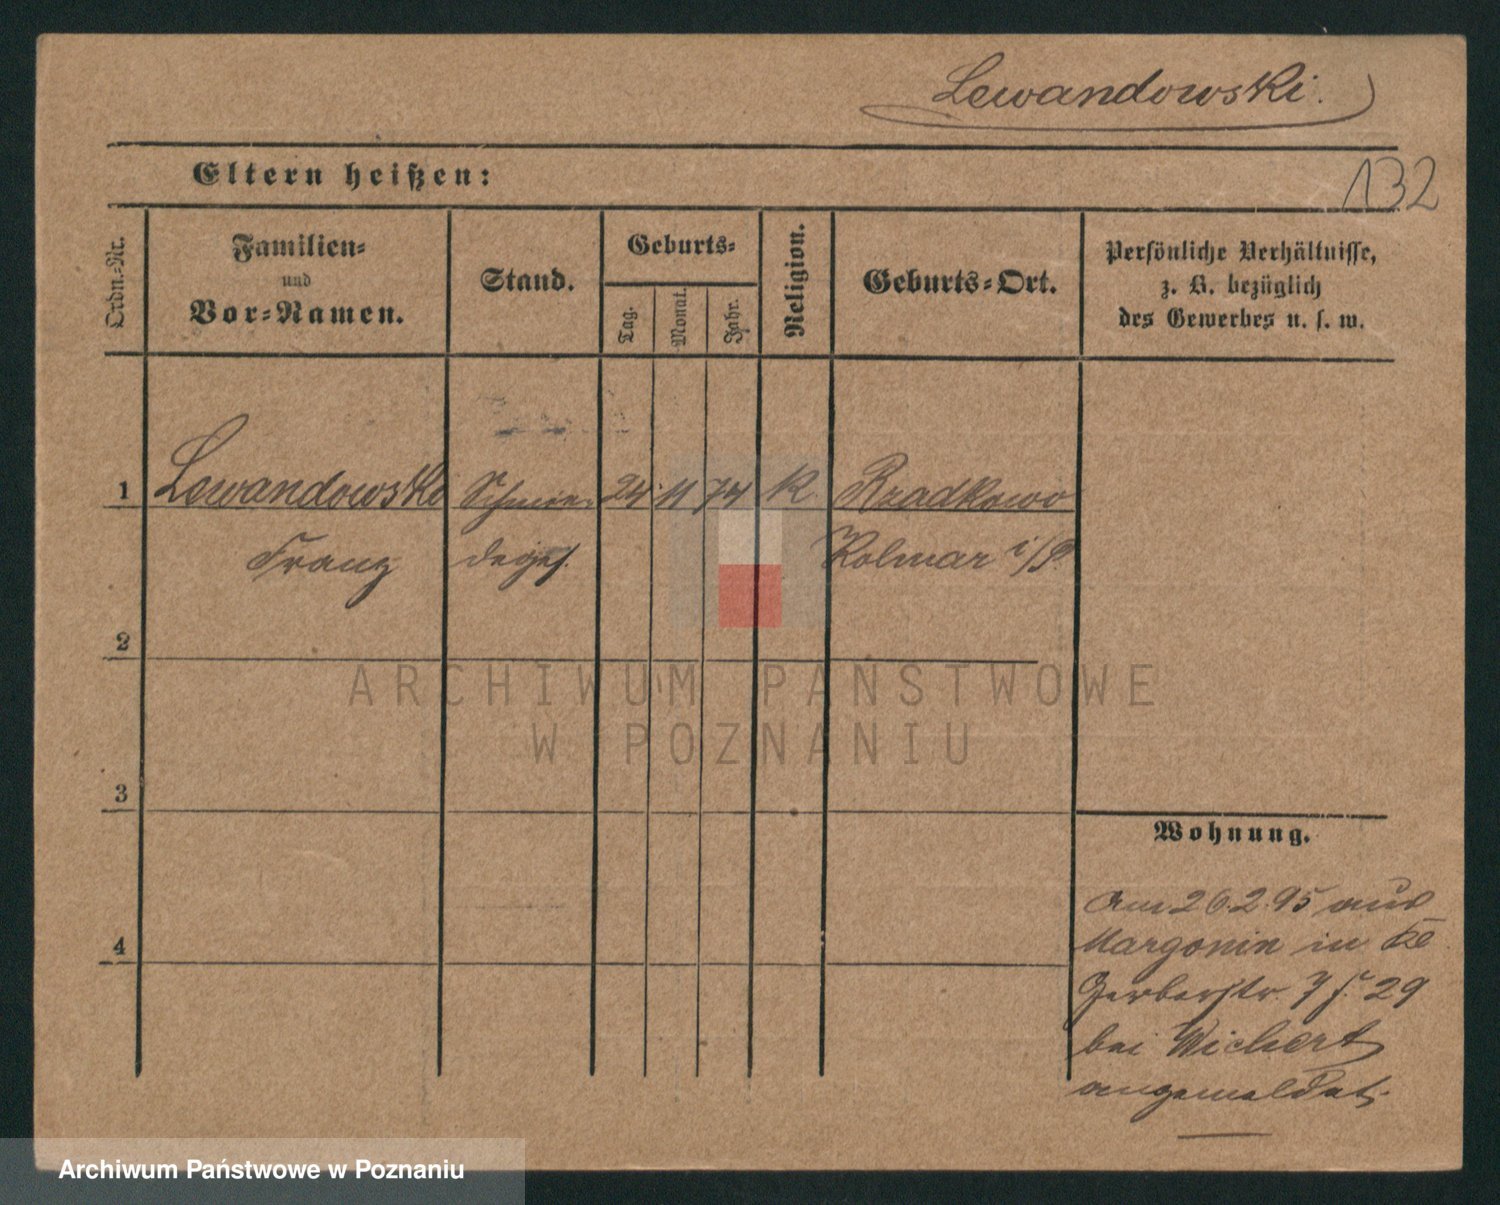 Lewandowski.
132
Eltern heißen:
Ordn.-Nr.
Familien-
und
Vor-Namen.
Stand.
Geburts-
Tag.
Monat.
Jahr.
Religion.
Geburts-Ort.
Persönliche Verhältnisse,
z. B. bezüglich
des Gewerbes u. s. w.
1 Lewandowski Schmie- 24 11 74 K. Rzadkowo
Franz deges. Kolmar i/P.
2
3
4
Wohnung.
Am 26.2.95 aus
Margonin in
Gerberstr. 29
bei Wichert
angemeldet.
ARCHIWUM PAŃSTWOWE
W POZNANIU
Archiwum Państwowe w Poznaniu